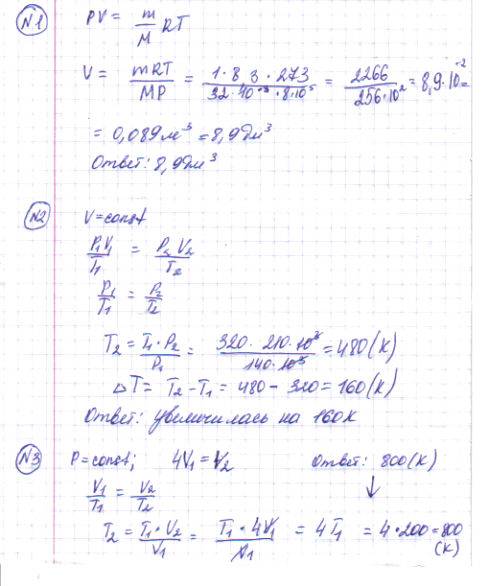 №1
PV = m/M RT
V = mRT/MP = 1·8,3·273/32·10⁻³·8·10⁵ = 2266/256·10² = 8,9·10⁻² =
= 0,089м³ = 8,9дм³
Ответ: 8,9дм³
№2
V=const
P₁V₁/T₁ = P₂V₂/T₂
P₁/T₁ = P₂/T₂
T₂ = T₁·P₂/P₁ = 320·210·10³/140·10³ = 480(К)
ΔT = T₂ - T₁ = 480 - 320 = 160(К)
Ответ: увеличилась на 160К
№3
P=const; 4V₁=V₂ Ответ: 800(К)
V₁/T₁ = V₂/T₂ ↓
T₂ = T₁·V₂/V₁ = T₁·4V₁/V₁ = 4T₁ = 4·200=800
(К)